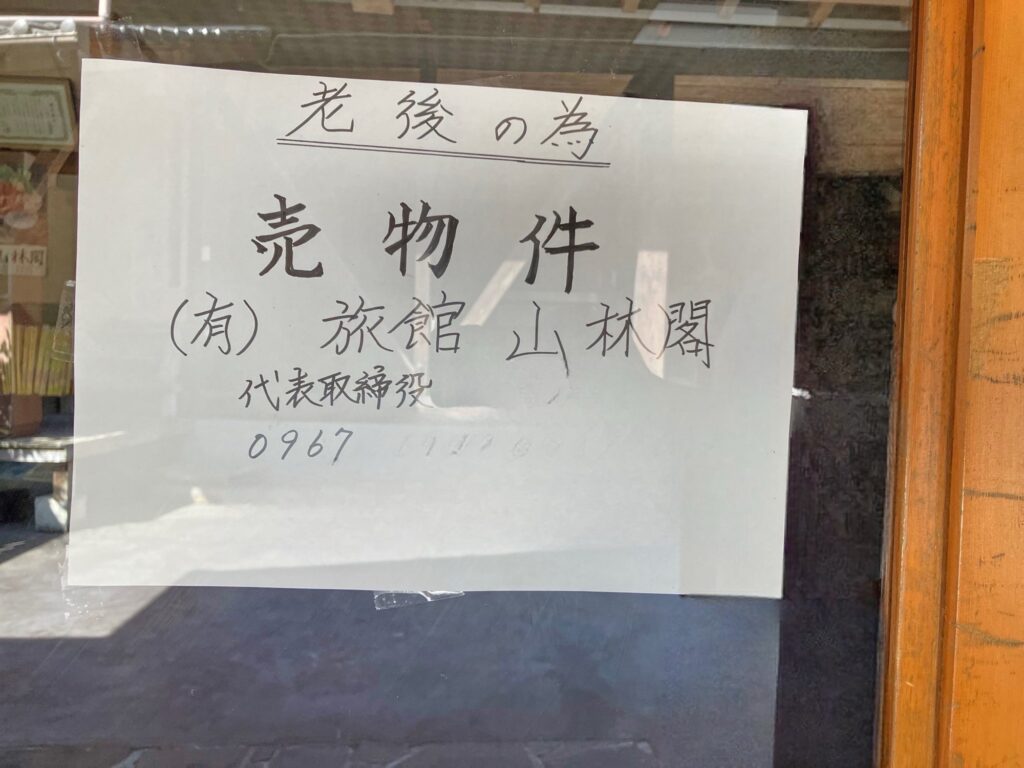 老後の為
売物件
(有) 旅館 山林閣
代表取締役
0967
林閣